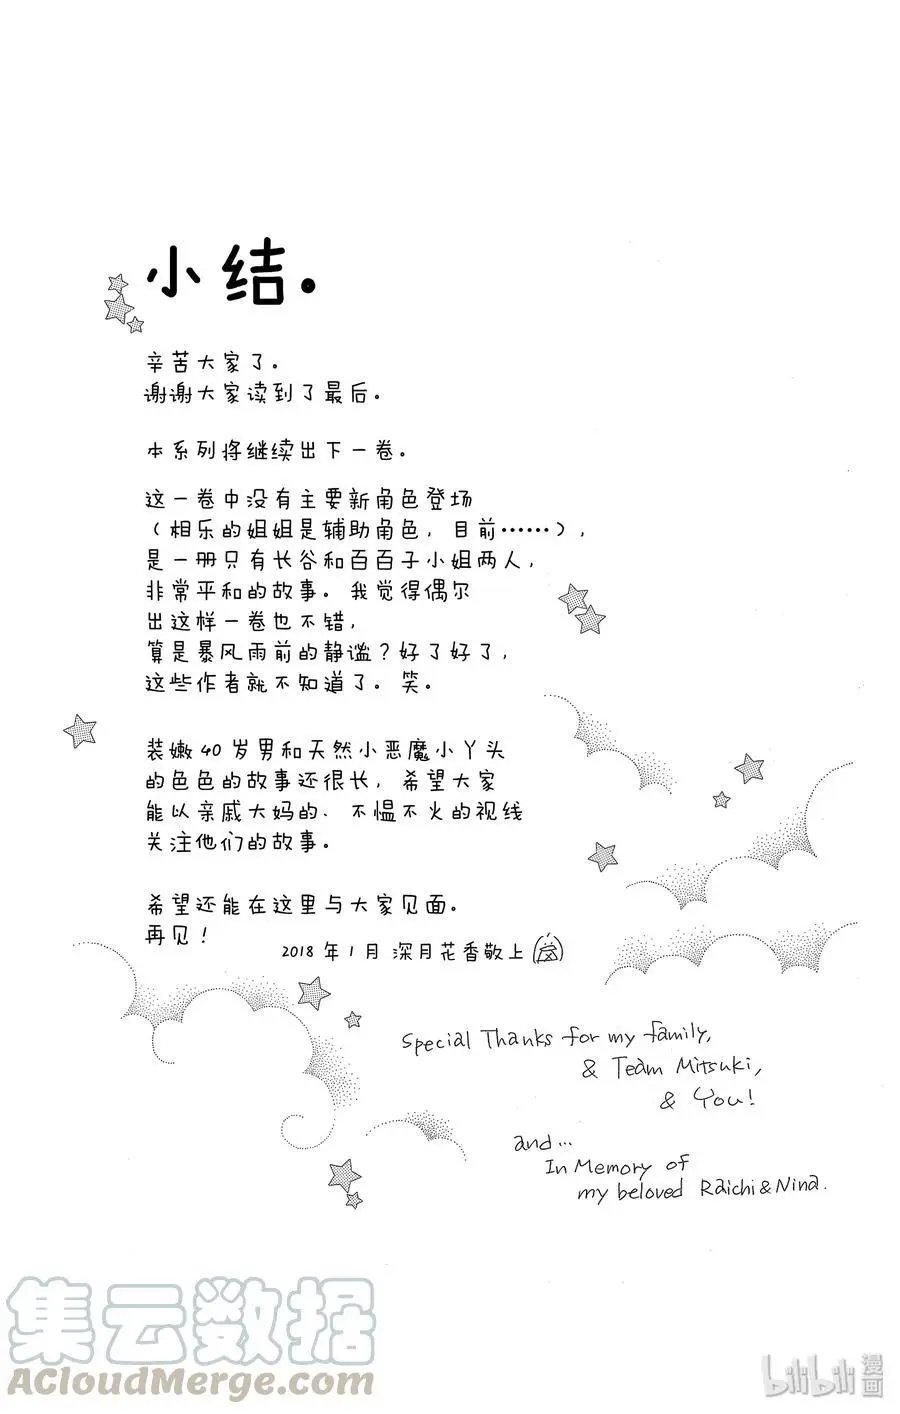 小结。
辛苦大家了。
谢谢大家读到了最后。
本系列将继续出下一卷。
这一卷中没有主要新角色登场
（相乐的姐姐是辅助角色，目前……），
是一册只有长谷和百百子小姐两人，
非常平和的故事。我觉得偶尔
出这样一卷也不错，
算是暴风雨前的静谧？好了好了，
这些作者就不知道了。笑。
装嫩40岁男和天然小恶魔小丫头
的色色的故事还很长，希望大家
能以亲戚大妈的、不愠不火的视线
关注他们的故事。
希望还能在这里与大家见面。
再见！
2018年1月 深月花香敬上
Special Thanks for my family,
& Team Mitsuki,
& You!
and...
In Memory of
my beloved Raichi & Nina.
集云数据
ACloudMerge.com
bilibili漫画